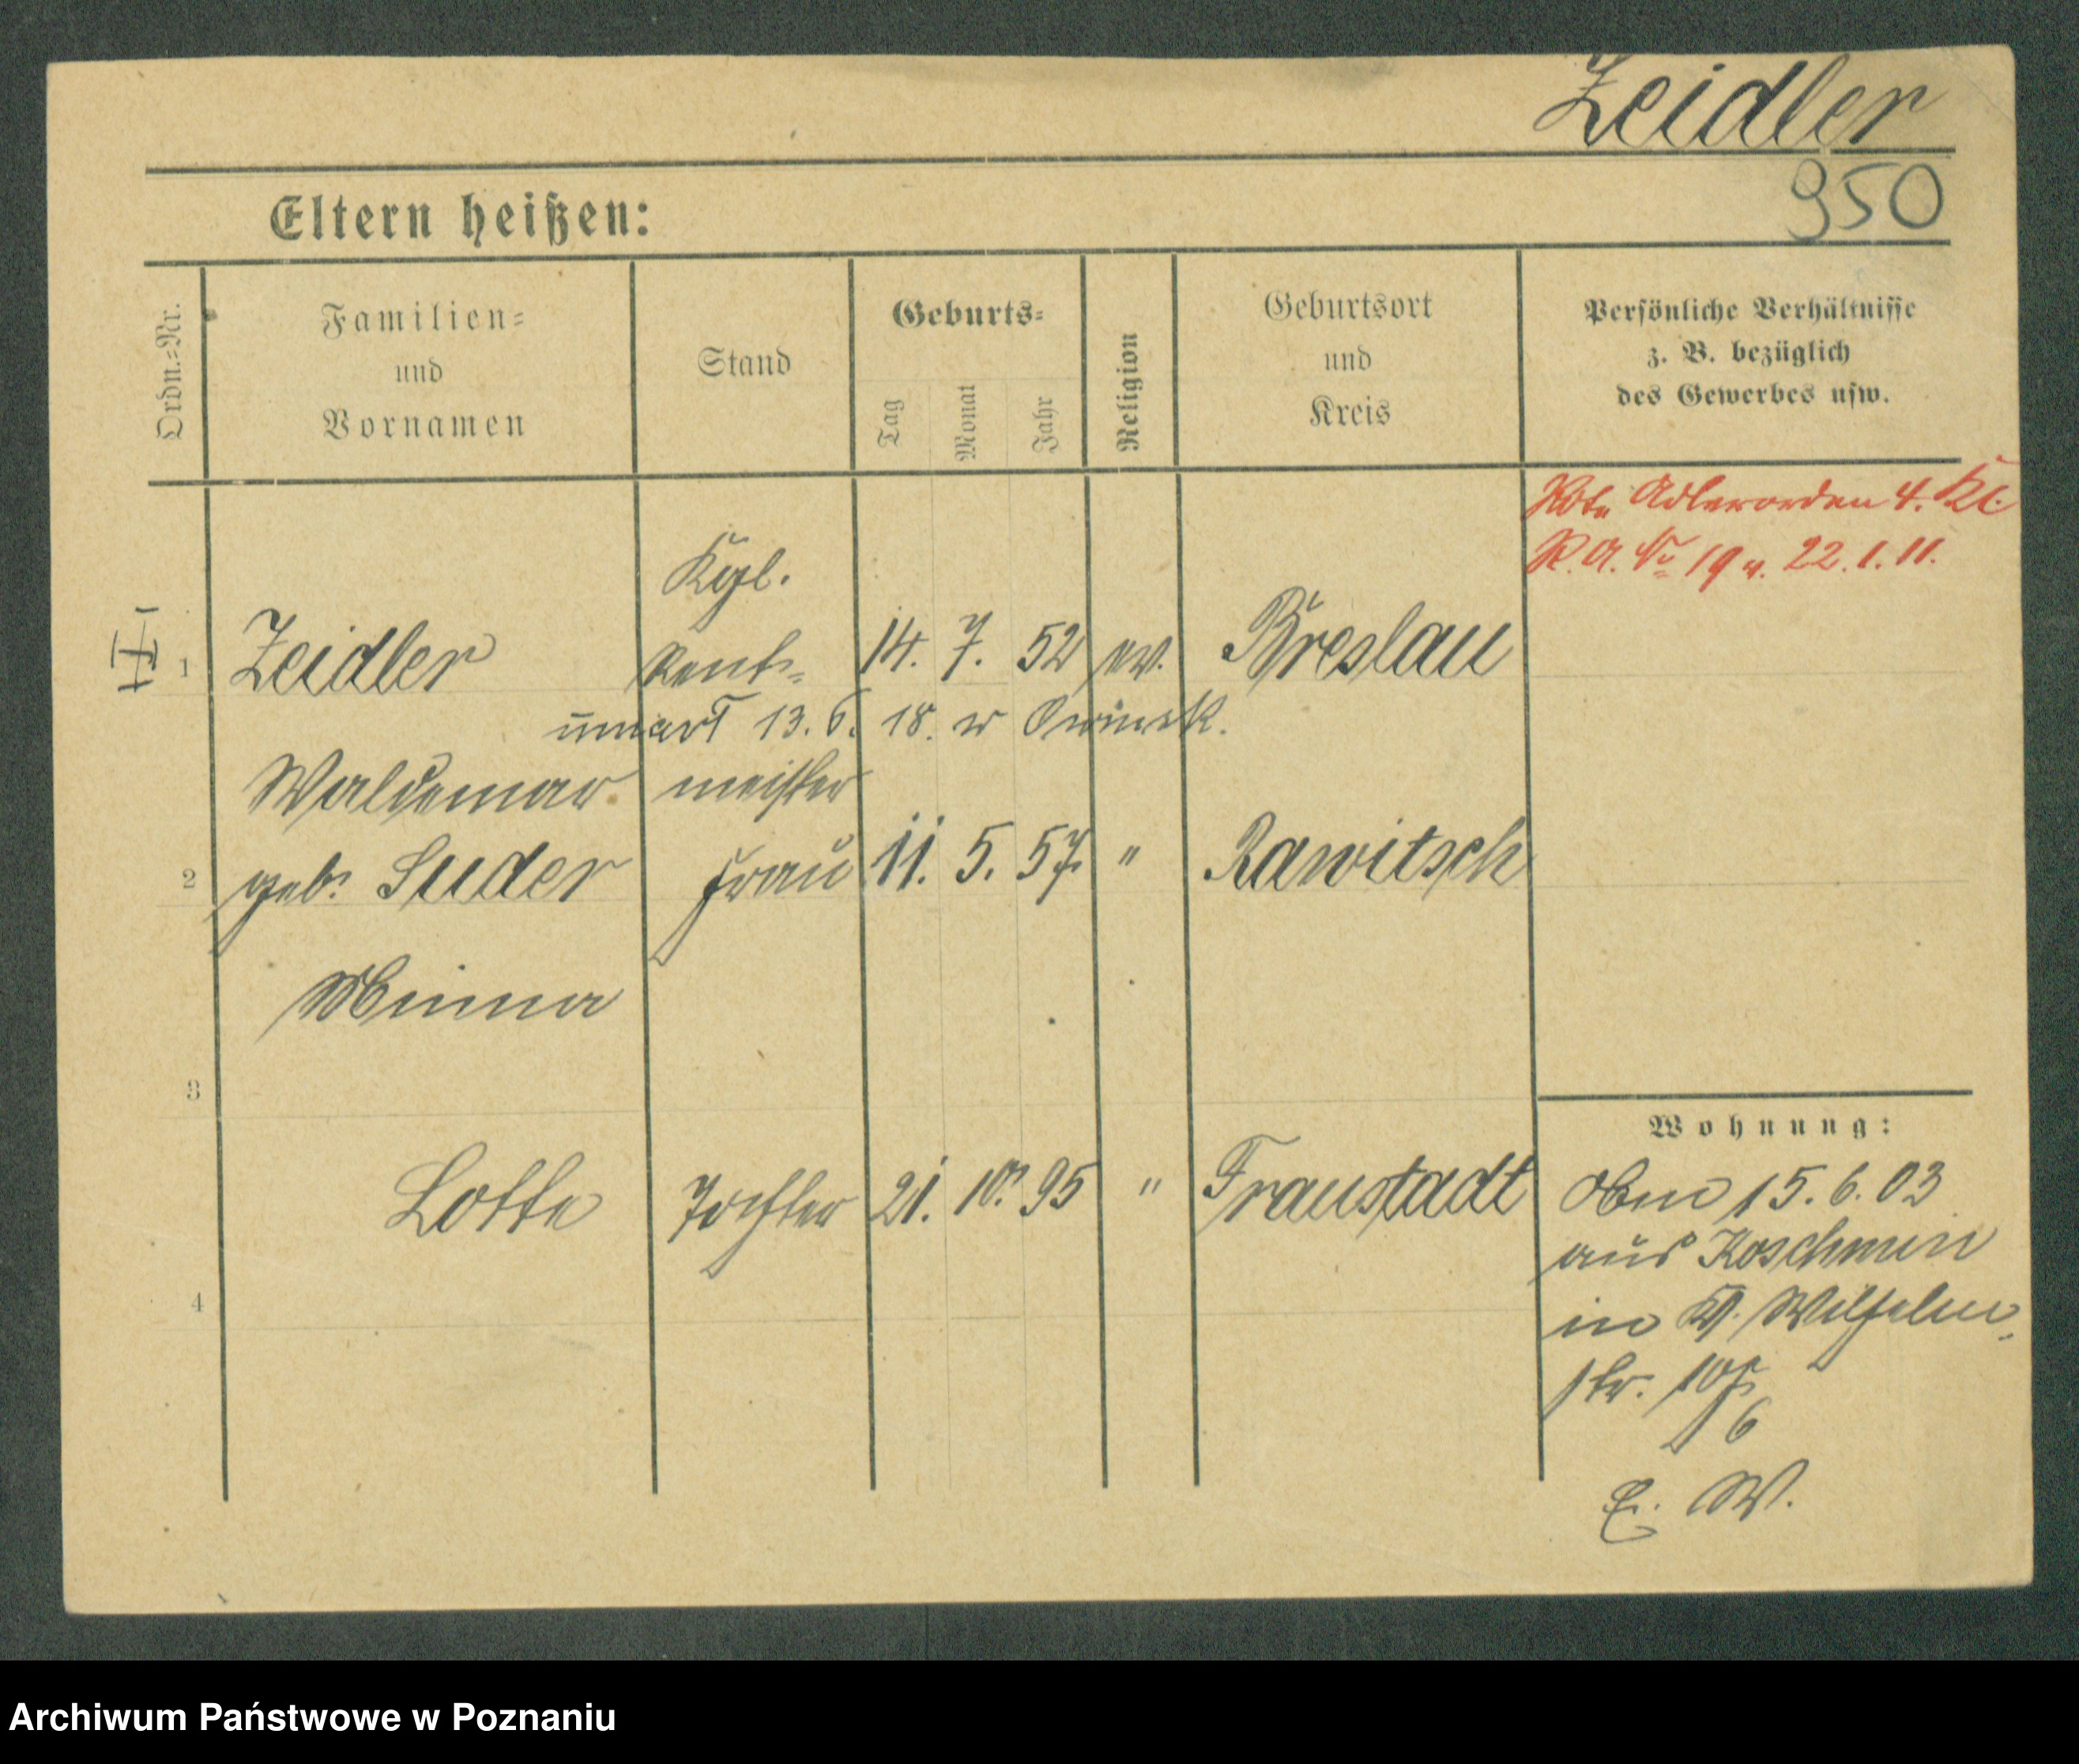 Zeidler
950
Eltern heißen:
Ordn.=Nr.
Familien=
und
Vornamen
Stand
Geburts=
Tag
Monat
Jahr
Religion
Geburtsort
und
Kreis
Persönliche Verhältnisse
z. B. bezüglich
des Gewerbes usw.
Adlerorden 4. Kl.
19 v. 22.1.11.
1 Zeidler Kgl. Rent- 14. 7. 52 ev. Breslau
umarł 13. 6. 18. w Owinsk.
Waldemar meister
2 geb. Suder Frau 11. 5. 57. " Rawitsch
Minna
3
Lotte Tochter 21. 10. 95 " Fraustadt
4
Wohnung:
15. 6. 03
aus Koschmin
in Wilhelm-
str.
6
E. W.
Archiwum Państwowe w Poznaniu